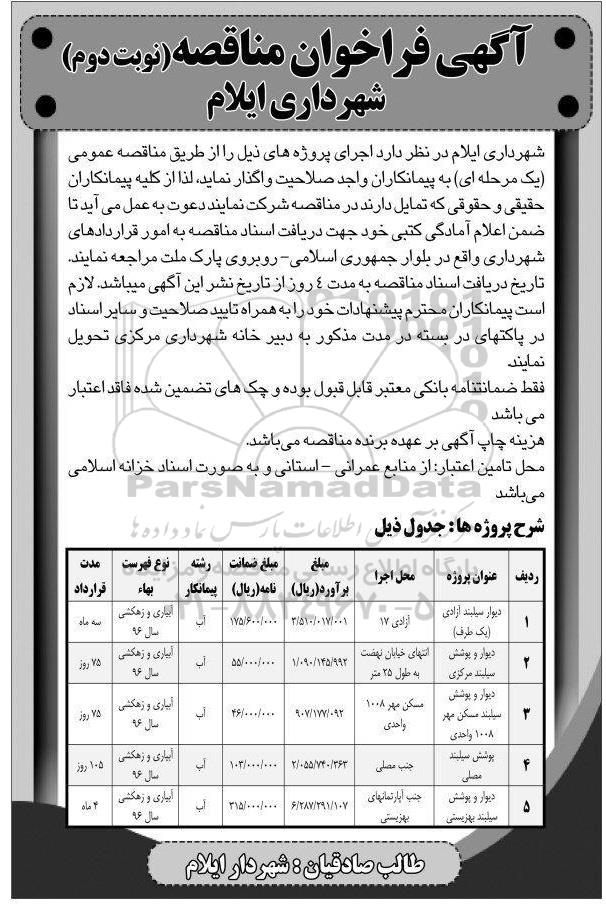 آگهی فراخوان مناقصه (نوبت دوم)
شهرداری ایلام
شهرداری ایلام در نظر دارد اجرای پروژه های ذیل را از طریق مناقصه عمومی
(یک مرحله ای) به پیمانکاران واجد صلاحیت واگذار نماید، لذا از کلیه پیمانکاران
حقیقی و حقوقی که تمایل دارند در مناقصه شرکت نمایند دعوت به عمل می آید تا
ضمن اعلام آمادگی کتبی خود جهت دریافت اسناد مناقصه به امور قراردادهای
شهرداری واقع در بلوار جمهوری اسلامی- روبروی پارک ملت مراجعه نمایند.
تاریخ دریافت اسناد مناقصه به مدت ٤ روز از تاریخ نشر این آگهی میباشد. لازم
است پیمانکاران محترم پیشنهادات خود را به همراه تایید صلاحیت و سایر اسناد
در پاکتهای در بسته در مدت مذکور به دبیر خانه شهرداری مرکزی تحویل
نمایند.
فقط ضمانتنامه بانکی معتبر قابل قبول بوده و چک های تضمین شده فاقد اعتبار
می باشد
هزینه چاپ آگهی بر عهده برنده مناقصه می‌باشد.
محل تامین اعتبار: از منابع عمرانی - استانی و به صورت اسناد خزانه اسلامی
می‌باشد
ParsNamadData
پایگاه اطلاع رسانی مناقصه و مزایده
۰۲۱-۸۸۳۴۹۶۷۰-۵
شرح پروژه ها: جدول ذیل
ردیف | عنوان پروژه | محل اجرا | مبلغ برآورد(ریال) | مبلغ ضمانت نامه(ریال) | رشته پیمانکار | نوع فهرست بهاء | مدت قرارداد
۱ | دیوار سیلبند آزادی (یک طرف) | آزادی ۱۷ | ۳/۵۱۰/۰۱۷/۰۰۱ | ۱۷۵/۶۰۰/۰۰۰ | آب | آبیاری و زهکشی سال ۹۶ | سه ماه
۲ | دیوار و پوشش سیلبند مرکزی | انتهای خیابان نهضت به طول ۲۵ متر | ۱/۰۹۰/۱۴۵/۹۹۲ | ۵۵/۰۰۰/۰۰۰ | آب | آبیاری و زهکشی سال ۹۶ | ۷۵ روز
۳ | دیوار و پوشش سیلبند مسکن مهر ۱۰۰۸ واحدی | مسکن مهر ۱۰۰۸ واحدی | ۹۰۷/۱۷۷/۰۹۲ | ۴۶/۰۰۰/۰۰۰ | آب | آبیاری و زهکشی سال ۹۶ | ۷۵ روز
۴ | پوشش سیلبند مصلی | جنب مصلی | ۲/۰۵۵/۷۴۰/۳۶۳ | ۱۰۳/۰۰۰/۰۰۰ | آب | آبیاری و زهکشی سال ۹۶ | ۱۰۵ روز
۵ | دیوار و پوشش سیلبند بهزیستی | جنب آپارتمانهای بهزیستی | ۶/۲۸۷/۲۹۱/۱۰۷ | ۳۱۵/۰۰۰/۰۰۰ | آب | آبیاری و زهکشی سال ۹۶ | ۴ ماه
طالب صادقیان : شهردار ایلام